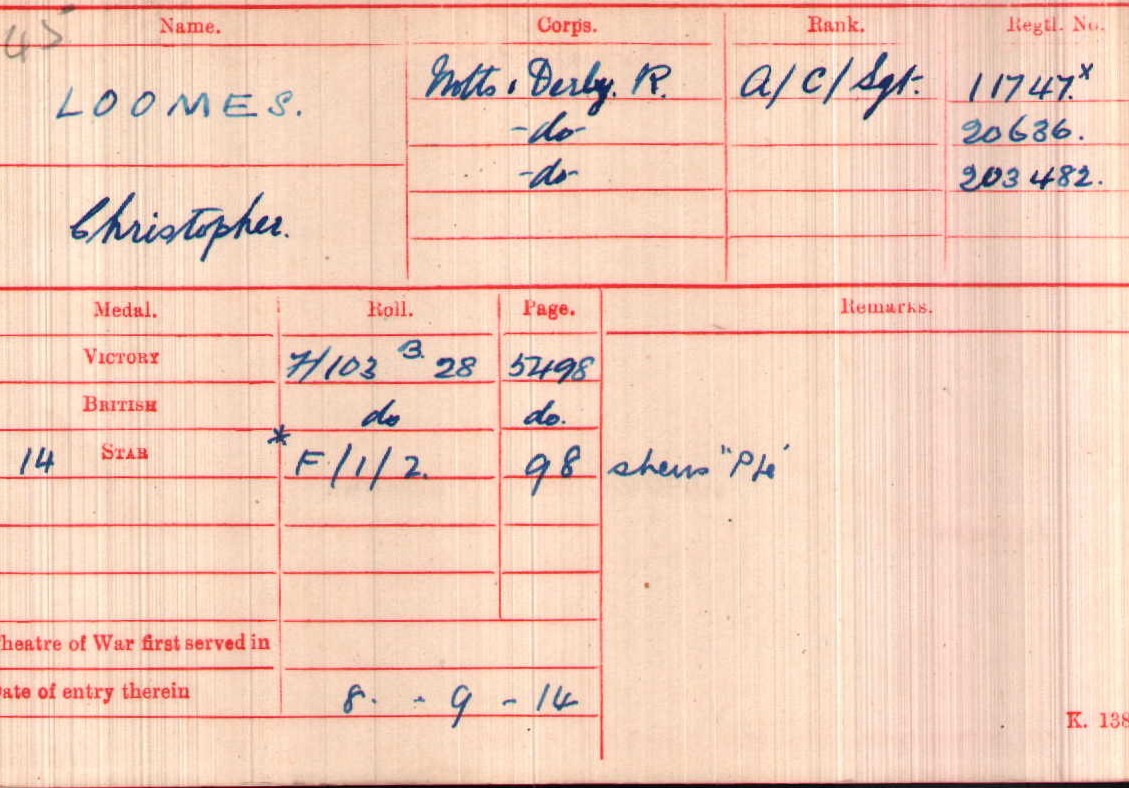 45
Name. Corps. Rank. Regtl. No.
LOOMES. Notts & Derby. R. A/C/Sgt. 11747.x
-do- 20636.
-do- 203482.
Christopher.
Medal. Roll. Page. Remarks.
VICTORY H/103 B 28 5498
BRITISH do do.
14 STAR * F/1/2. 98 shews "Pte"
Theatre of War first served in
Date of entry therein 8. - 9 - 14
K. 138